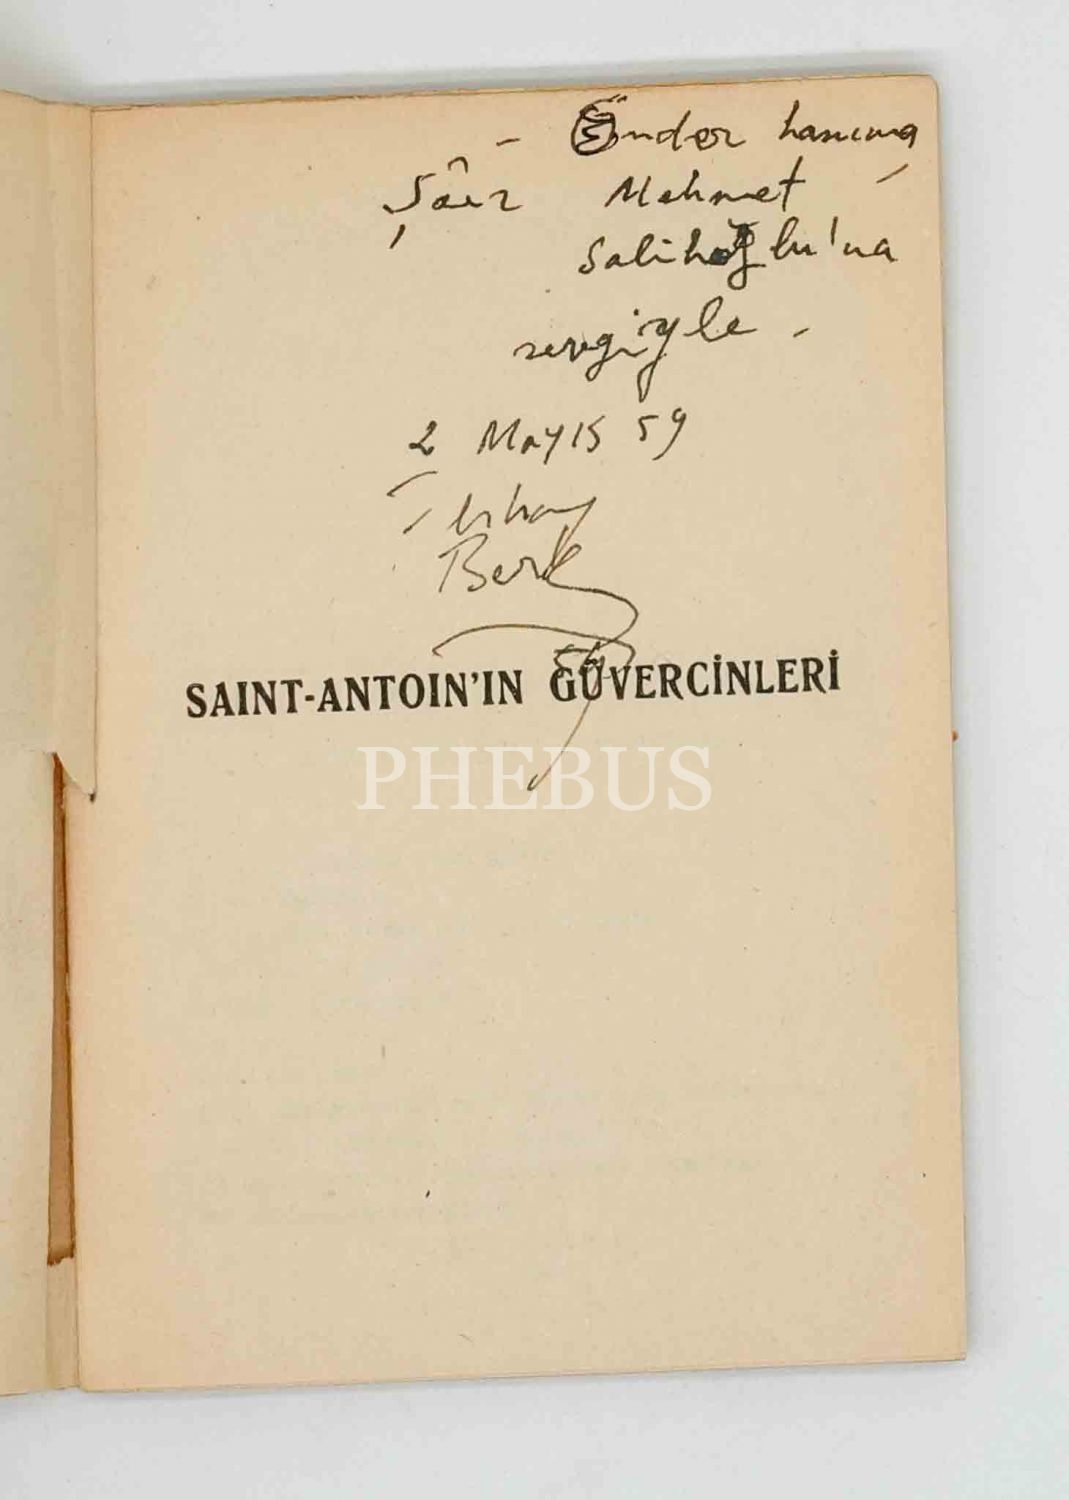 - Önder hanıma,
Şâir Mehmet
Salihoğlu'na
sevgiyle -
2 Mayıs 59
- İlhan
Berk
SAINT-ANTOIN'IN GÜVERCİNLERİ
PHEBUS